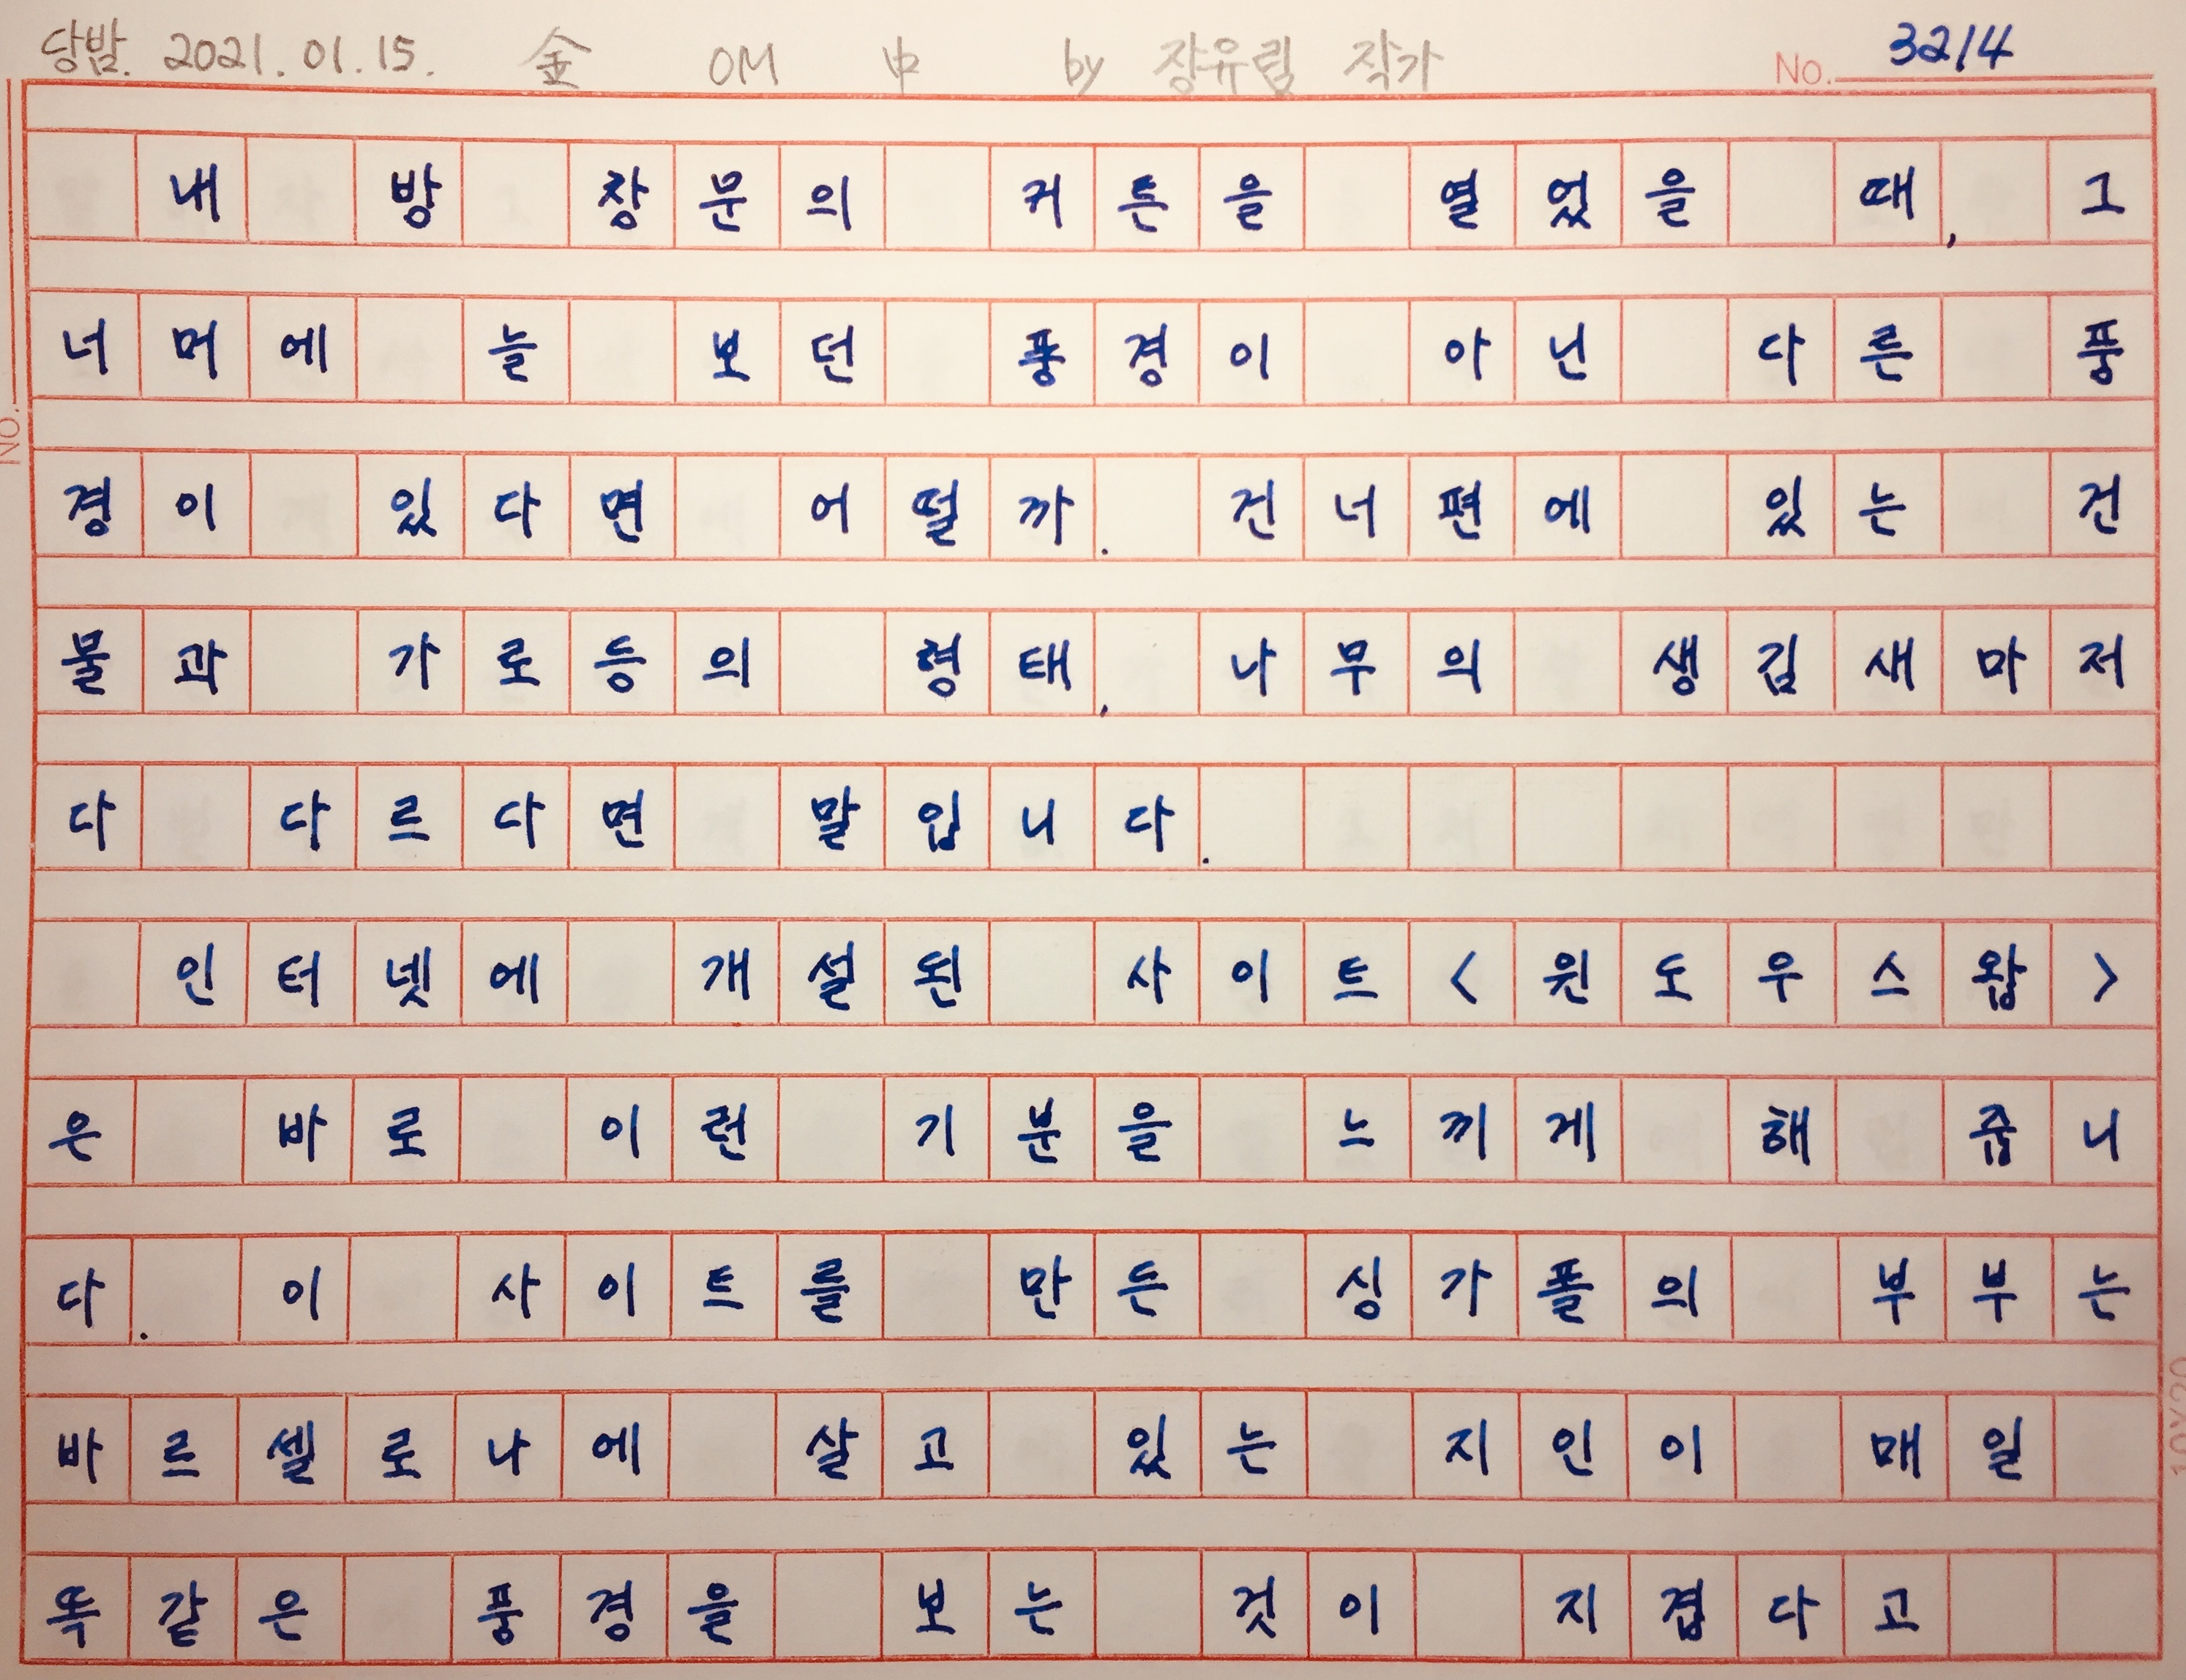 당밤. 2021. 01. 15. 金 OM 中 by 장유림 작가
No. 32/4
내 방 창문의 커튼을 열었을 때, 그
너머에 늘 보던 풍경이 아닌 다른 풍
경이 있다면 어떨까. 건너편에 있는 건
물과 가로등의 형태, 나무의 생김새마저
다 다르다면 말입니다.
인터넷에 개설된 사이트<윈도우스왑>
은 바로 이런 기분을 느끼게 해 줍니
다. 이 사이트를 만든 싱가폴의 부부는
바르셀로나에 살고 있는 지인이 매일
똑같은 풍경을 보는 것이 지겹다고
No.
10×20